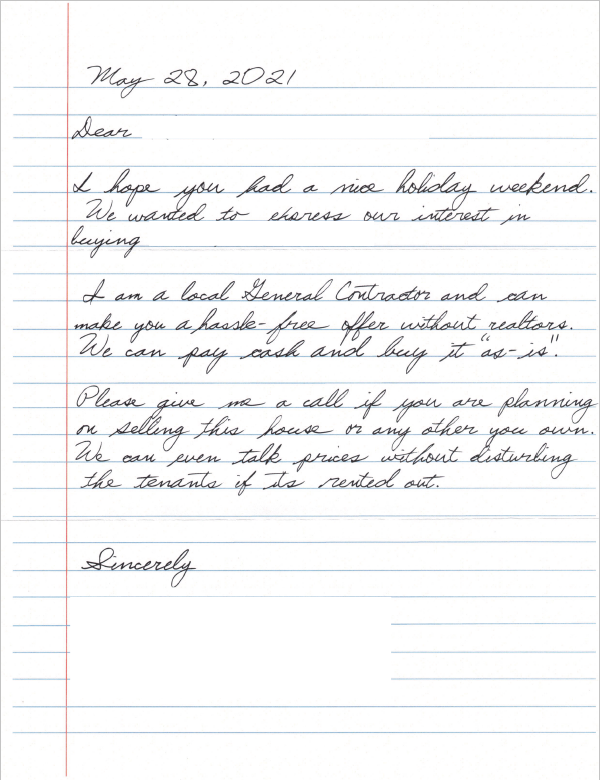 May 28, 2021
Dear
I hope you had a nice holiday weekend.
We wanted to express our interest in
buying
I am a local General Contractor and can
make you a hassle-free offer without realtors.
We can pay cash and buy it "as-is".
Please give me a call if you are planning
on selling this house or any other you own.
We can even talk prices without disturbing
the tenants if its rented out.
Sincerely